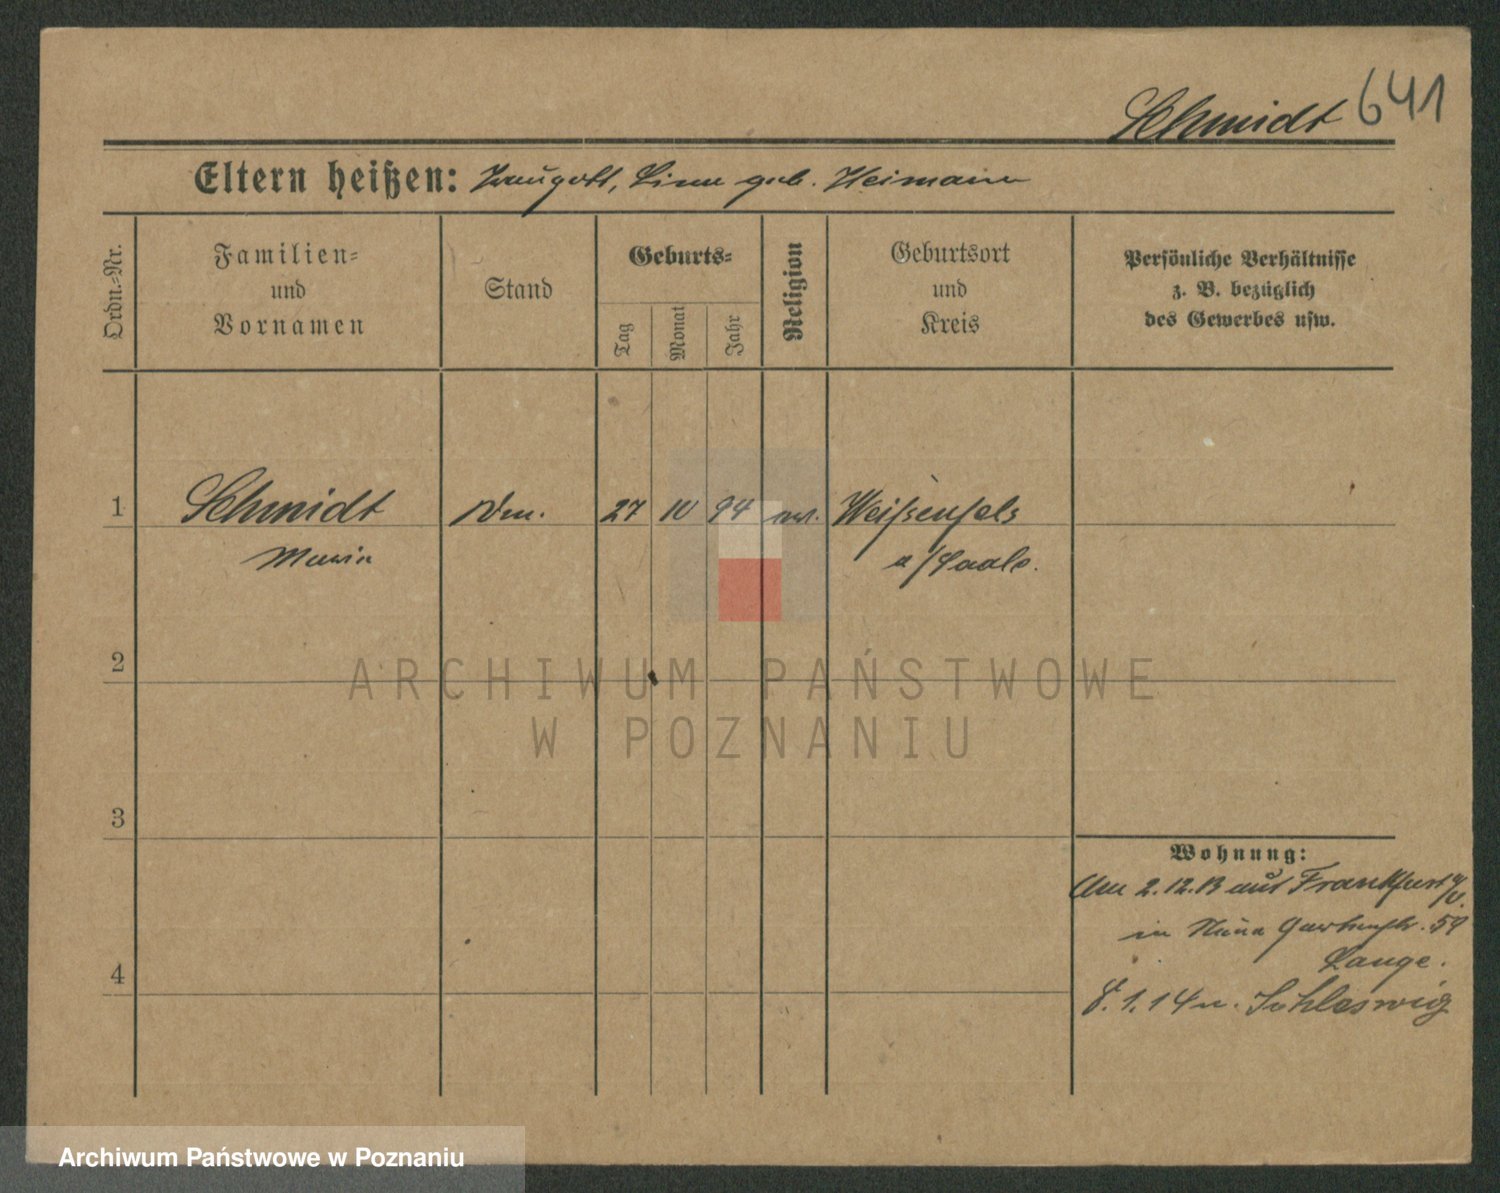 Schmidt 641
Eltern heißen: Traugott, Lina geb. Heimann
Ordn.-Nr.
Familien-
und
Vornamen
Stand
Geburts-
Tag
Monat
Jahr
Religion
Geburtsort
und
Kreis
Persönliche Verhältnisse
z. B. bezüglich
des Gewerbes usw.
1 Schmidt 27 10 94 Weißenfels
a/Saale.
2
3
4
Wohnung:
Am 2.12.13 aus Frankfurt a/O.
in Gartenstr. 59
Lange.
8.1.14 n. Schleswig
ARCHIWUM PAŃSTWOWE
W POZNANIU
Archiwum Państwowe w Poznaniu